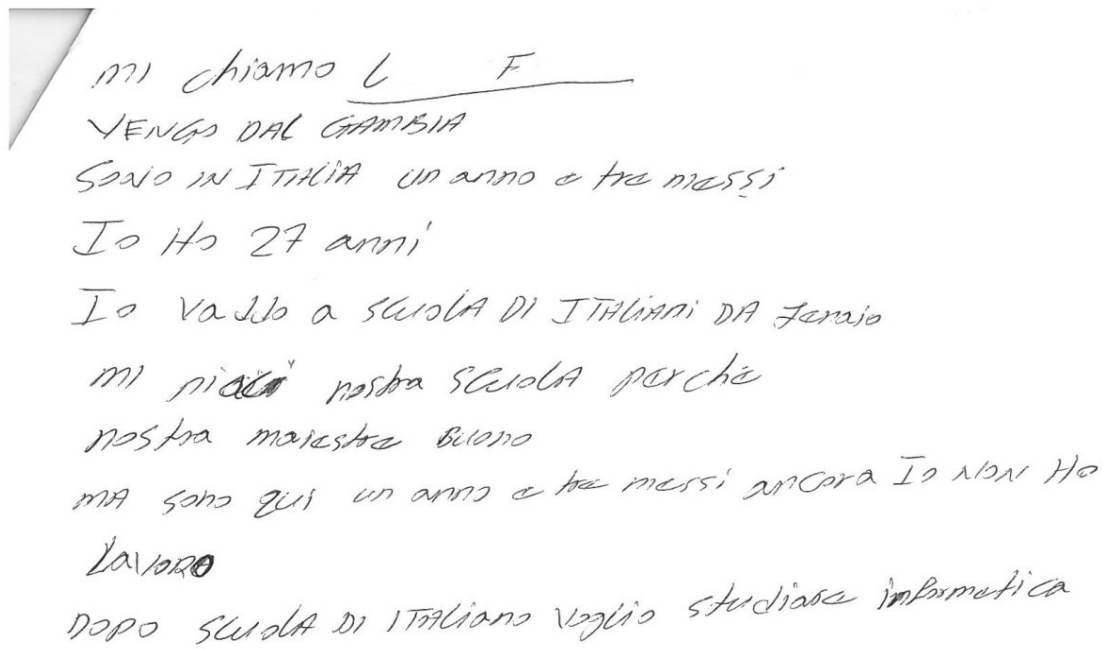 mi chiamo L F
VENGO DAL GAMBIA
SONO IN ITALIA un anno e tre messi
Io Ho 27 anni
Io vaddo a scuola DI ITALIANI DA Jenaio
mi piaci nostra scuola perche
nostra maiestre Buono
MA sono qui un anno e tre messi ancora Io NON Ho
Lavoro
DOPO scuola DI ITALIANO voglio studiare informatica